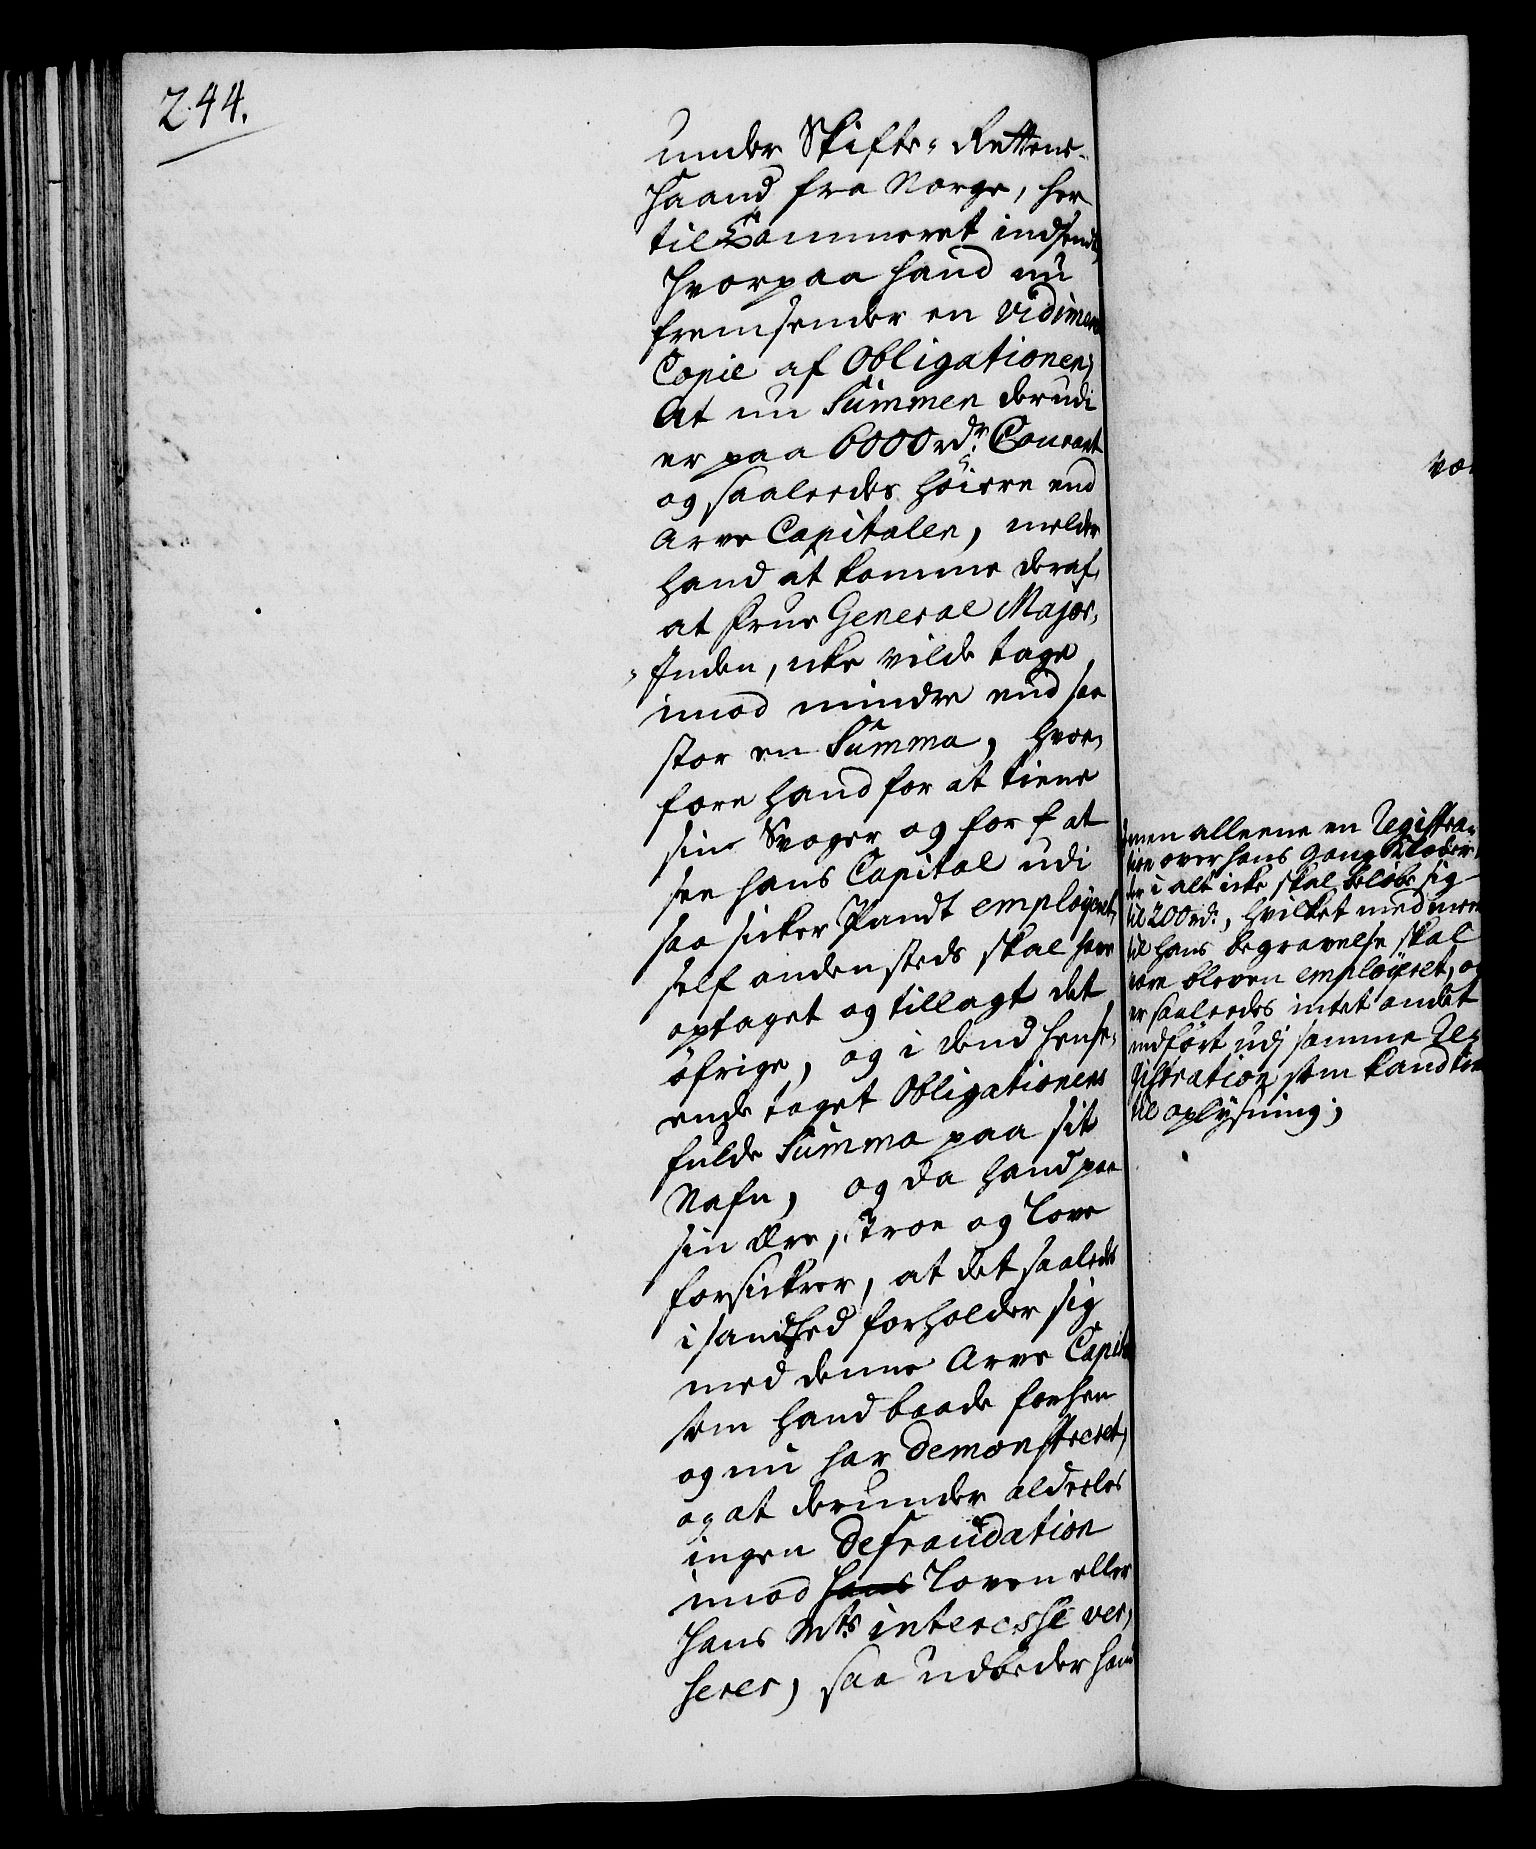 244.
under Skifte-Rettens
Haand fra Norge, her
til Cammeret indsendt,
Hvorpaa hand nu
fremsender en vidimeret
Copie af Obligationen,
At nu Summen derudi
er paa 6000 rdr. Courant
og saaledes höiere end
Arve Capitalen, melder
hand at komme deraf,
at Frue General Major,
Inden, icke vilde tage
imod mindre end saa
stor en Summa, hvor,
fore hand for at tiene
sin Svoger og for at
see hans Capital udi
saa sicker Pandt employeret,
self andensteds skal have
optaget og tillagt det
öfrige, og i dend hense,
ende taget Obligationens
fulde Summa paa sit
Nafn, og da hand paa
sin Ære, Troe og Love
forsickrer, at det saaledes
i sandhed forholder sig
med denne Arve Capital
som hand baade forhen
og nu har demonstreret,
og at derunder aldeeles
ingen defraudation
imod hans Loven eller
Hans Mts interesse ver,
serer, saa udbeder hand
væ
men alleene en Registra,
tion over hans Gang Klæder,
der i alt icke skal beløbe sig
til 200 rd., hvilket med meere
til hans begravelse skal
være bleven employeret, og
er saaledes intet andet
indfört udj samme Re,
gistration som kand tiene
til oplysning;